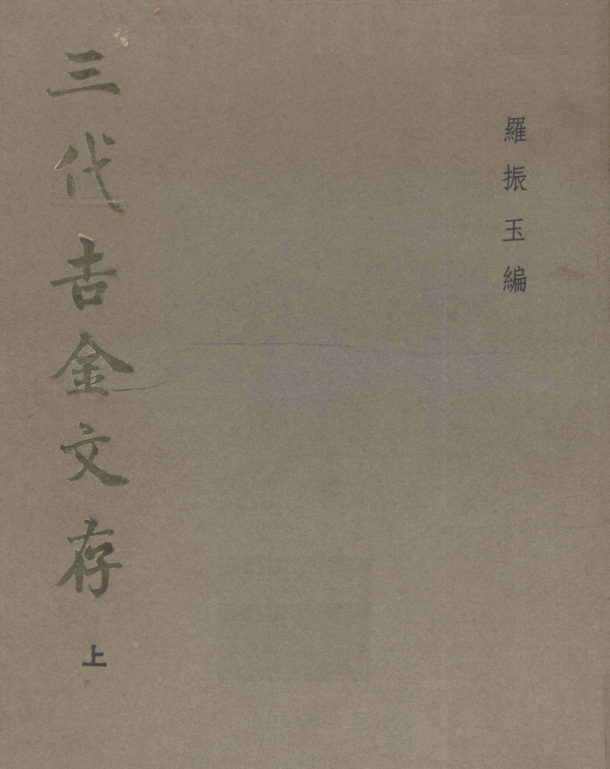 羅振玉編
三代吉金文存
上